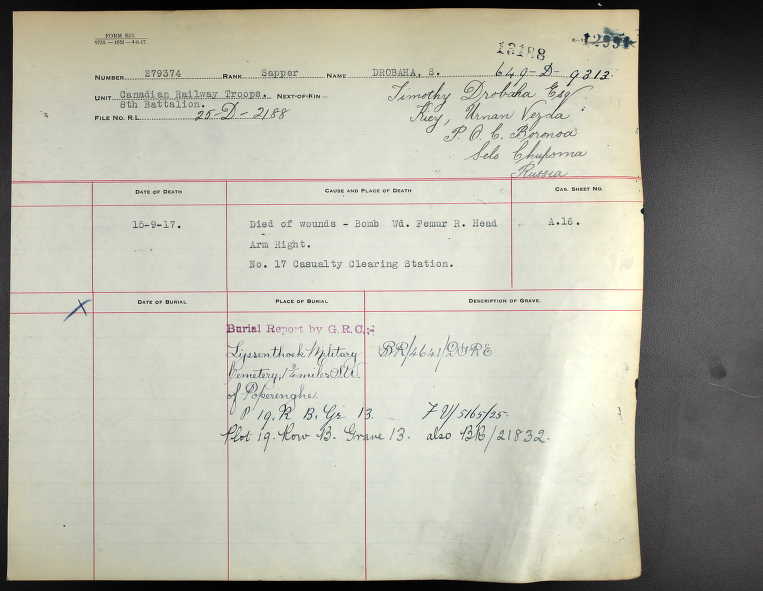 FORM
13198
NUMBER 279374 RANK Sapper NAME DROBAHA, S. 649-D-9313.
UNIT Canadian Railway Troops. NEXT-OF-KIN Timothy Drobaha Esq
8th Battalion. Kiev, Urnan Vezda
FILE NO. R.L. 25-D-2188
P.O. C. Boronoa
Selo Chuposna
Russia
DATE OF DEATH CAUSE AND PLACE OF DEATH CAS. SHEET NO.
15-9-17. Died of wounds - Bomb Wd. Femur R. Head A.16.
Arm Right.
No. 17 Casualty Clearing Station.
X DATE OF BURIAL PLACE OF BURIAL DESCRIPTION OF GRAVE.
Burial Report by G.R.C.:-
Lijssenthoek Military BR/4641/DGRE
Cemetery, 1¾ miles S.W.
of Poperenghe.
P 19. R B. Gr 13. 7 V/5165/25.
Plot 19. Row B. Grave 13. also BR/21832.